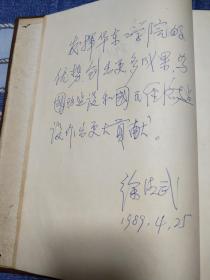 发挥华东工学院的
优势创出更多成果,为
国防建设和国民经济建
设作出更大贡献。
徐浩武
1989.4.25